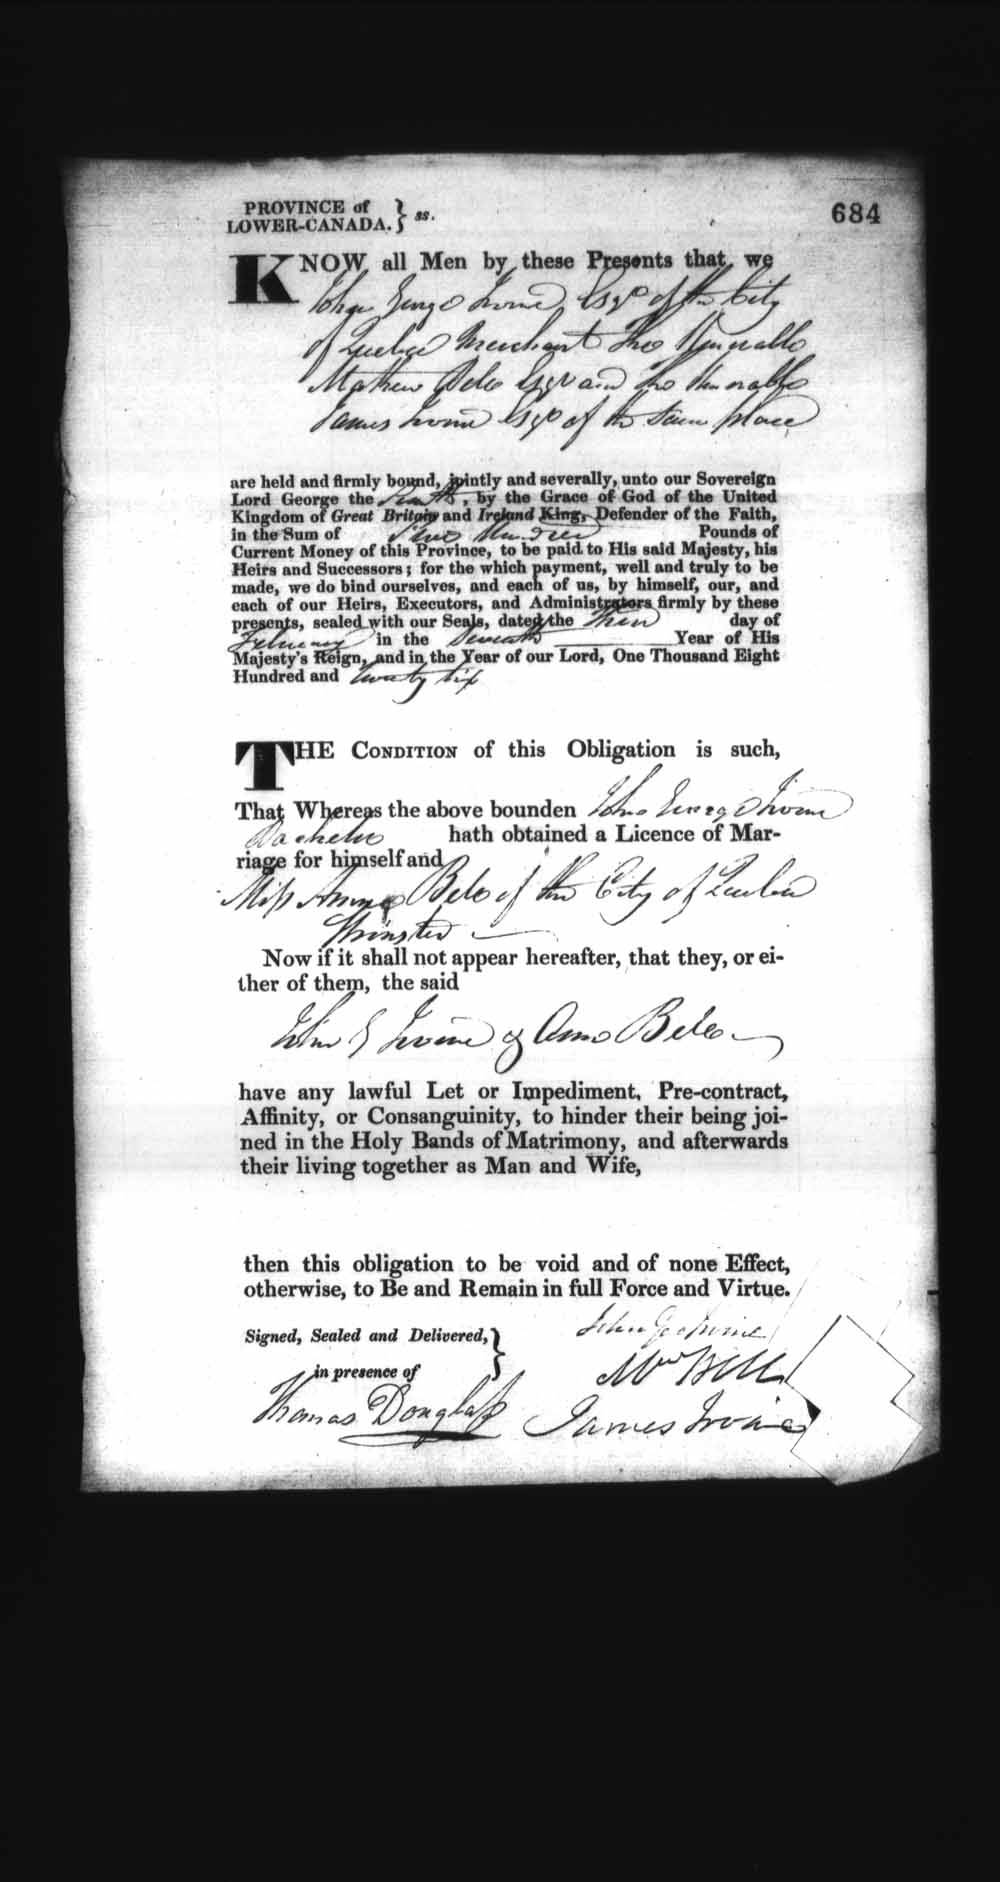 PROVINCE of
LOWER-CANADA. } ss.
684
KNOW all Men by these Presents that we
John George Irvine Esqr of the City
of Quebec Merchant The Honorable
Mathew Bell Esqr and the Honorable
James Irvine Esqr of the same place
are held and firmly bound, jointly and severally, unto our Sovereign
Lord George the Fourth, by the Grace of God of the United
Kingdom of Great Britain and Ireland King, Defender of the Faith,
in the Sum of Hundred Pounds of
Current Money of this Province, to be paid to His said Majesty, his
Heirs and Successors; for the which payment, well and truly to be
made, we do bind ourselves, and each of us, by himself, our, and
each of our Heirs, Executors, and Administrators firmly by these
presents, sealed with our Seals, dated the Third day of
February in the Seventh Year of His
Majesty's Reign, and in the Year of our Lord, One Thousand Eight
Hundred and twenty six
THE CONDITION of this Obligation is such,
That Whereas the above bounden John George Irvine
Bachelor hath obtained a Licence of Mar-
riage for himself and
Miss Anne Bell of the City of Quebec
Spinster
Now if it shall not appear hereafter, that they, or ei-
ther of them, the said
John G Irvine & Ann Bell
have any lawful Let or Impediment, Pre-contract,
Affinity, or Consanguinity, to hinder their being joi-
ned in the Holy Bands of Matrimony, and afterwards
their living together as Man and Wife,
then this obligation to be void and of none Effect,
otherwise, to Be and Remain in full Force and Virtue.
Signed, Sealed and Delivered, }
in presence of
John Geo Irvine
Mw Bell
Thomas Douglass
James Irvine